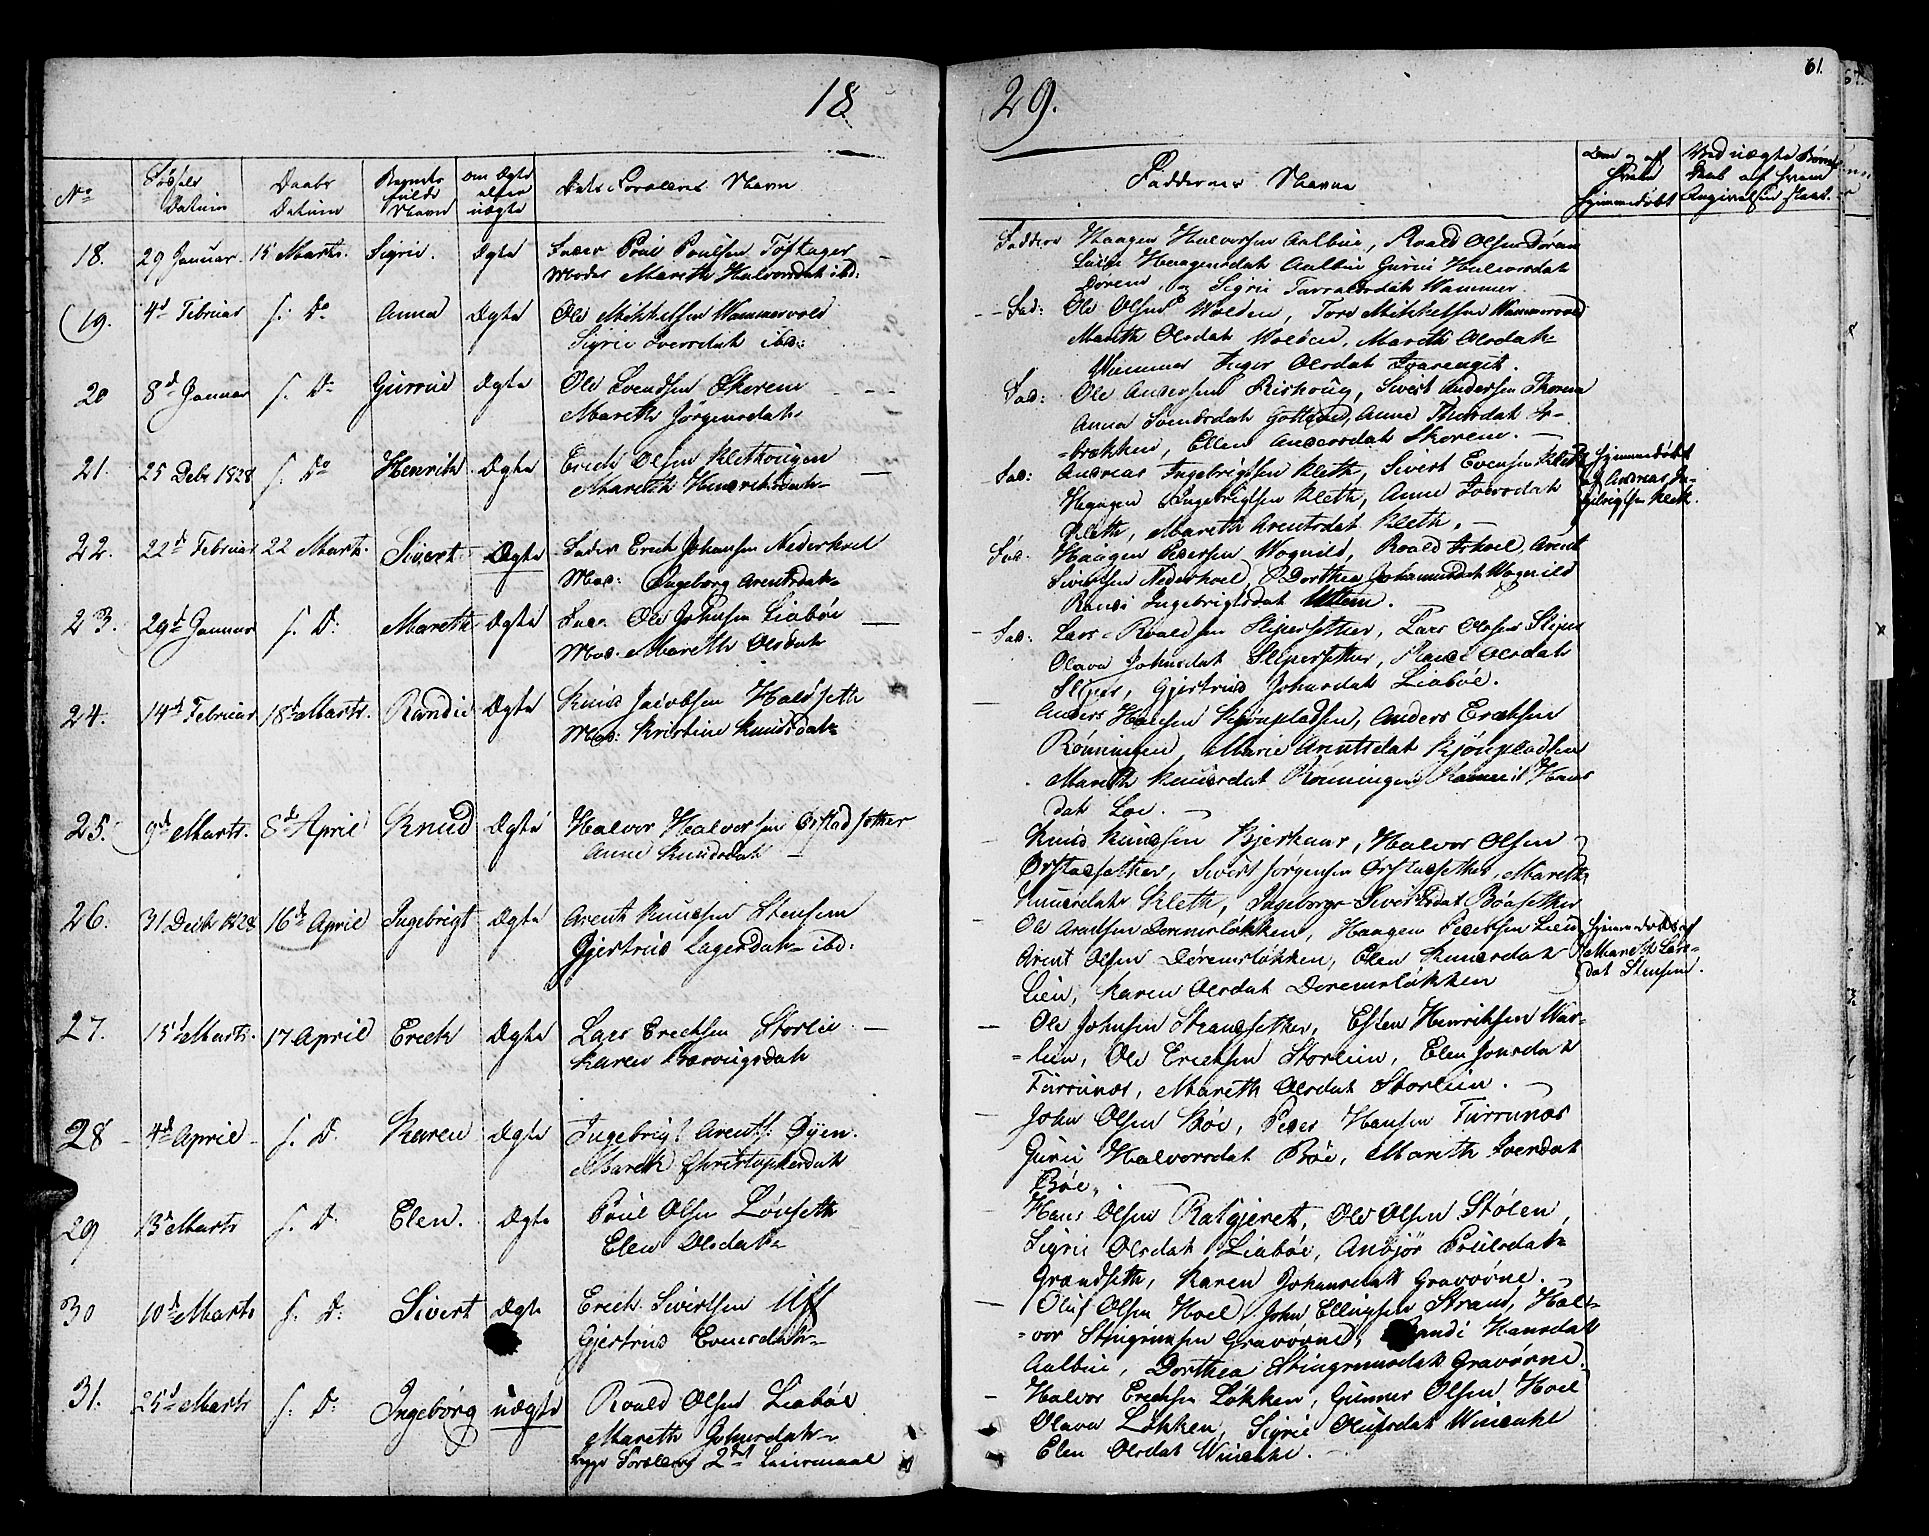 18
29.
61.
No
Fødsels Datum
Daabs Datum
Barnets fulde Navn
om Ægte eller uægte
Dets Forældres Navn
Faddernes Navne
hjemmedøbt
Ved uægte Børn
18. 29 Januar. 15 Marts. Sigrie. Ægte Fader Poul Poulsen Toftager
Moder Mareth Halvorsdat ibd:
Fadder Haagen Halvorsen Aalbue, Roald Olsen Dorem
Haagensdat Aalbue Guru Halvorsdat
Dorem, og Sigrie Hammer.
19. 4d Februar s: Do Anna Ægte Ole Mikkelsen Hammervold
Sigrie Iversdat ibd:
Fad: Ole Olsen Wolden, Tore Mikkelsen Hammervold
Mareth Olsdat Wolden, Mareth Olsdat
Hammer Inger Olsdat
20 8d Januar s. Do Gurrue Ægte Ole Svendsen Skorem
Mareth Jørgensdat
Fad: Ole Andersen Riskoug, Sivert Andersen Skorem
Anna Svendsdat
-brækken, Ellen Andersdat Skorem.
21. 25 Decbr 1828 s. Do Henrik. Ægte Erick Olsen Klethougen
Mareth Henrichsdat
Fad: Andreas Ingebrigtsen Kleth, Sivert Evensen Kleth
Haagen Ingebrigtsen Kleth, Anne Iversdat
Kleth, Mareth Arentsdat Kleth.
hjemmedøbt
af Andreas In-
gebrigtsen Kleth.
22. 22d Februar 22 Marts. Sivert Ægte Fader Erick Johansen Nederhoel
Mod: Ingeborg Arentsdat
Fad: Haagen Pedersen Wognild, Roald Arent
Sivertsen Nederhoel, Dorthea Johannesdat Wognild
Randi Ingebrigtsdat Uttem.
23. 29d Januar s. D: Mareth Ægte Fad: Ole Johnsen Liabøe
Mod. Mareth Olsdat
Fad: Lars Roaldsen Slipersæther, Lars Olsen Sliper
Olava Johnsdat Slipersæther, Randi Olsdat
Sliper, Gjertrud Johnsdat Liabøe.
24. 14d Februar 18d Marts. Randie Ægte Knud Jacobsen Haldseth
Mod: Kristine Knudsdat
Anders Hansen Kjønpladsen, Anders Ericksen
Rønningen, Marie Arentsdat Kjønpladsen
Mareth Knudsdat Rønningen Hans
dat Loe.
25. 9d Marts. 8d April Knud Ægte Halvor Halvorsen Ørstadsæther
Anne Knudsdat
Knud Knudsen Bjerkaar, Halvor Olsen
Ørstadsæther, Sivert Jørgensen Ørstadsæther, Mareth
Knudsdat Kleth, Ingeborg Sivertsdat Bøasæther
26. 31 Decbr 1828 16d April Ingebrigt Ægte Arent Knudsen Stensem
Gjertrud Larsdat ibd:
Ole Arentsen Doremsløkken, Haagen Pedersen Lien
Arent Olsen Doremsløkken, Elen Knudsdat
Lien, Karen Olsdat Doremsløkken
hjemmedøbt af
Mareth Lars-
dat Stensem.
27. 15d Marts. 17 April Erick Ægte Lars Ericksen Storlie
Karen
Ole Johnsen Strandsæther, Esten Henriksen
-lien, Ole Ericksen Storlien, Elen Jonsdat
Furrunæs, Mareth Olsdat Storlien.
28 4d April s. D. Karen Ægte Ingebrigt Arents: Øyen.
Mareth Christophersdat
John Olsen Bøe, Peder Hansen Furrunæs
Guru Halvorsdat Bøe, Mareth Iversdat
Bøe.
29 13d Marts s. D: Elen. Ægte Poul Olsen Lønseth
Elen Olsdat
Hans Olsen Ralgjerett, Ole Olsen Stølen,
Sigrie Olsdat Liabøe, Anbjør Poulsdat
Grandseth, Karen Johansdat Gravørne.
30 10d Marts s. D: Sivert Ægte Erick Sivertsen Uff
Gjertrud Evensdat
Oluf Olsen Hoel, John Ellingsen Strand, Hal-
-vor Stengrimsen Gravørne, Randi Hansdat
Aalbue, Dorthea Stengrimsdat Gravørne.
31. 25d Marts s. D: Ingebørg uægte Roald Olsen Liabøe
Mareth Johnsdat
Begge Forældres 2det Leiermaal
Halvor Ericksen Løkken, Gunner Olsen Hoel
Olava Løkken, Sigrie Olufsdat
Elen Olsdat